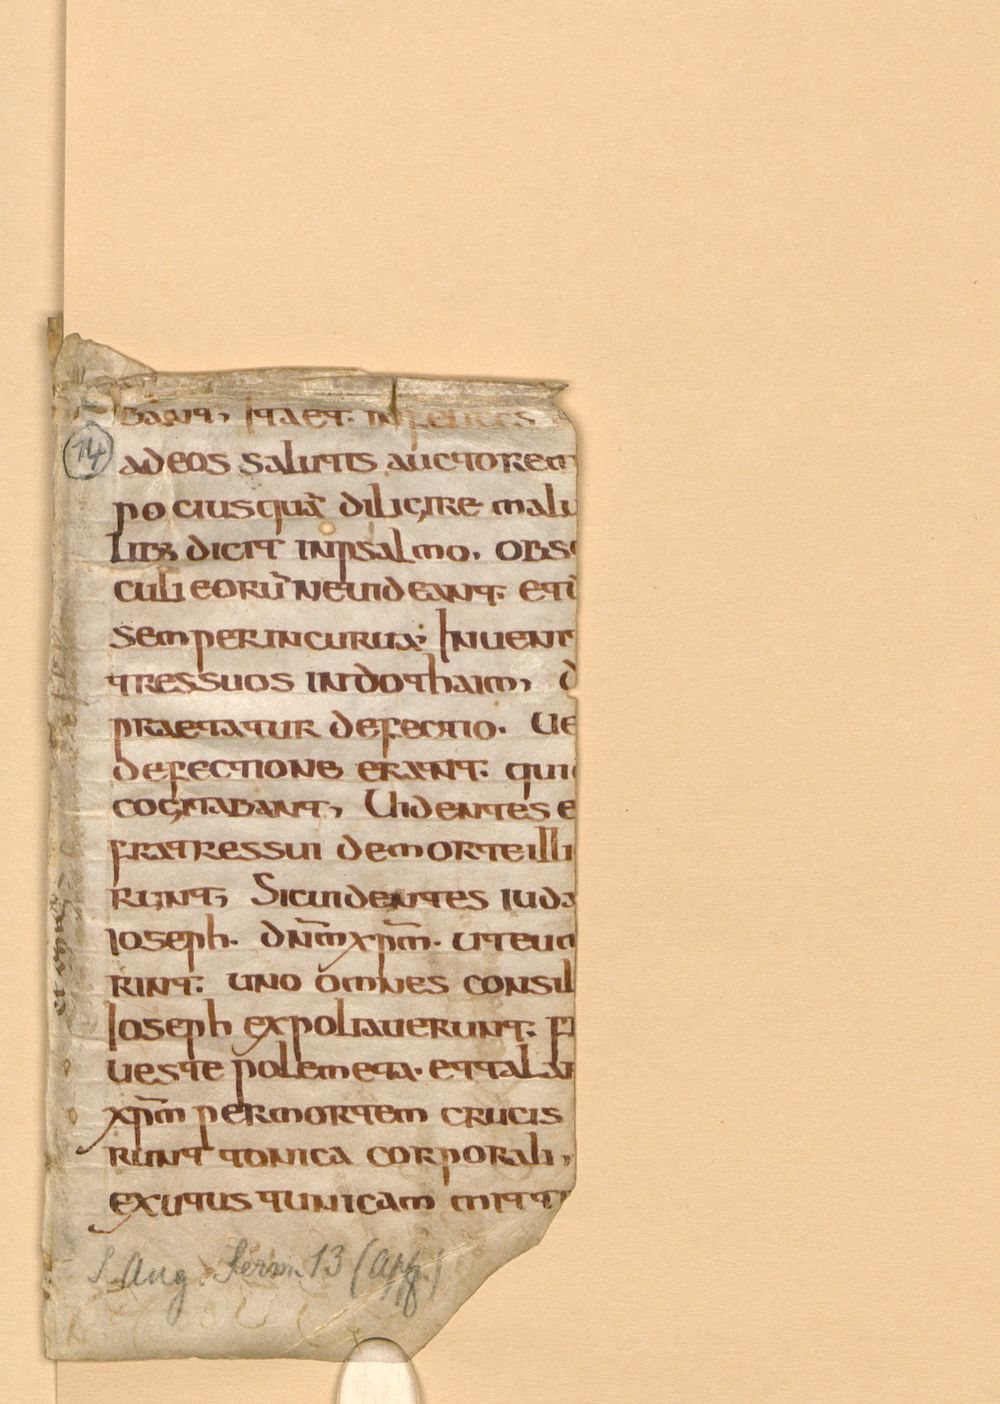 bant, Ita et infelices
14
ad eos salutis auctorem
pocius quā diligire malu
lib; dicit in psalmo. obsc
culi eorū ne uideant. et
semper incurua; Inueni
tres suos in dothaim, d
praetatur defectio. Ue
defectione erant. qui
cogitabant, Uidentes e
fratres sui de morte illi
runt, Sic uidentes iuda
Ioseph. dn̄m xp̄m. ut eum
rint. uno omnes consil
Ioseph expoliauerunt.
ueste polemeta. et tala
xp̄m per mortem crucis
runt tonica corporali,
exutus tunicam mitt
S. Aug. Serm. 13 (App.)